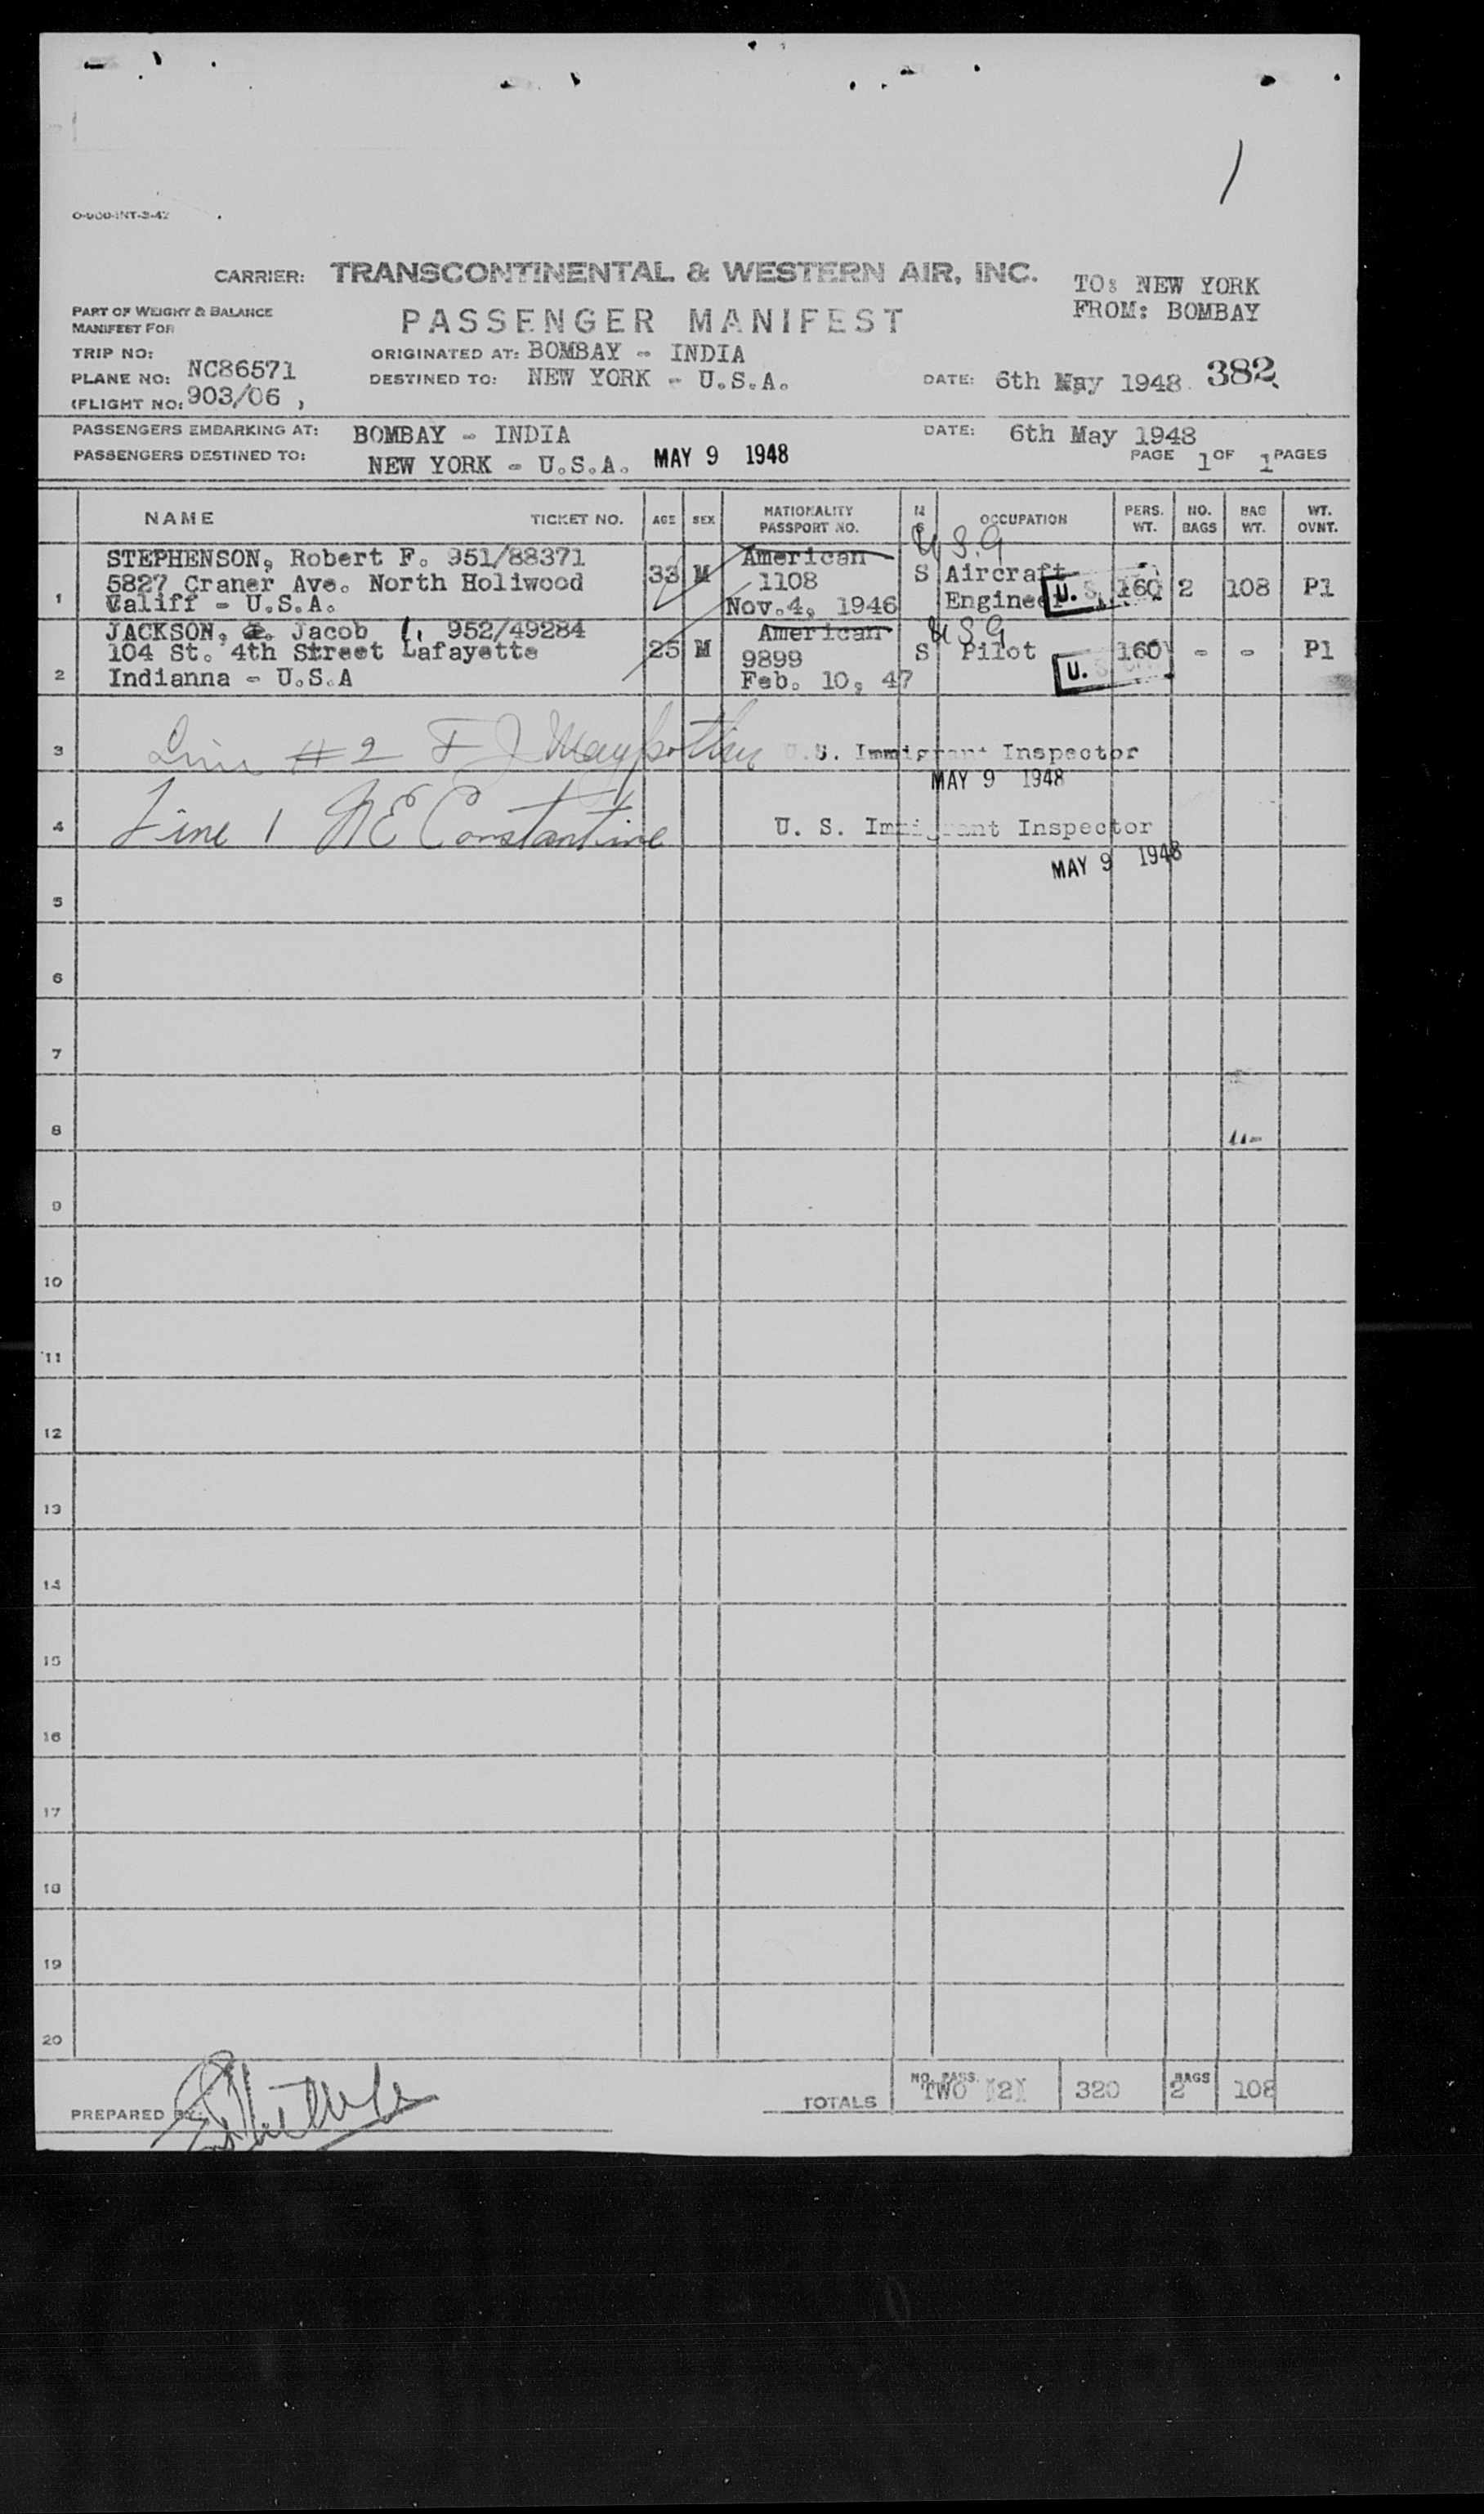 O-900-INT-3-42
CARRIER: TRANSCONTINENTAL & WESTERN AIR, INC.
TO: NEW YORK
FROM: BOMBAY
PART OF WEIGHT & BALANCE
MANIFEST FOR
PASSENGER MANIFEST
TRIP NO:
ORIGINATED AT: BOMBAY - INDIA
PLANE NO: NC86571
DESTINED TO: NEW YORK - U.S.A.
DATE: 6th May 1948 382
(FLIGHT NO: 903/06 )
PASSENGERS EMBARKING AT: BOMBAY - INDIA
DATE: 6th May 1948
PASSENGERS DESTINED TO: NEW YORK - U.S.A. MAY 9 1948
PAGE 1 OF 1 PAGES
NAME TICKET NO. AGE SEX NATIONALITY PASSPORT NO. M S OCCUPATION PERS. WT. NO. BAGS BAG WT. WT. OVNT.
STEPHENSON, Robert F. 951/88371 American U.S.A
5827 Craner Ave. North Holiwood 33 M 1108 S Aircraft 160 2 108 Pl
1 Califf - U.S.A. Nov.4, 1946 Engineer U. S.
JACKSON, Jacob L. 952/49284 American U S A
104 St. 4th Street Lafayette 25 M 9899 S Pilot 160 - - Pl
2 Indianna - U.S.A Feb. 10, 47 U. S.
3 Line #2 F J U.S. Immigrant Inspector
MAY 9 1948
4 Line 1 NE Constantine U. S. Immigrant Inspector
MAY 9 1948
5
6
7
8
9
10
11
12
13
14
15
16
17
18
19
20
PREPARED BY:
TOTALS NO. PASS. TWO (2) 320 BAGS 2 108